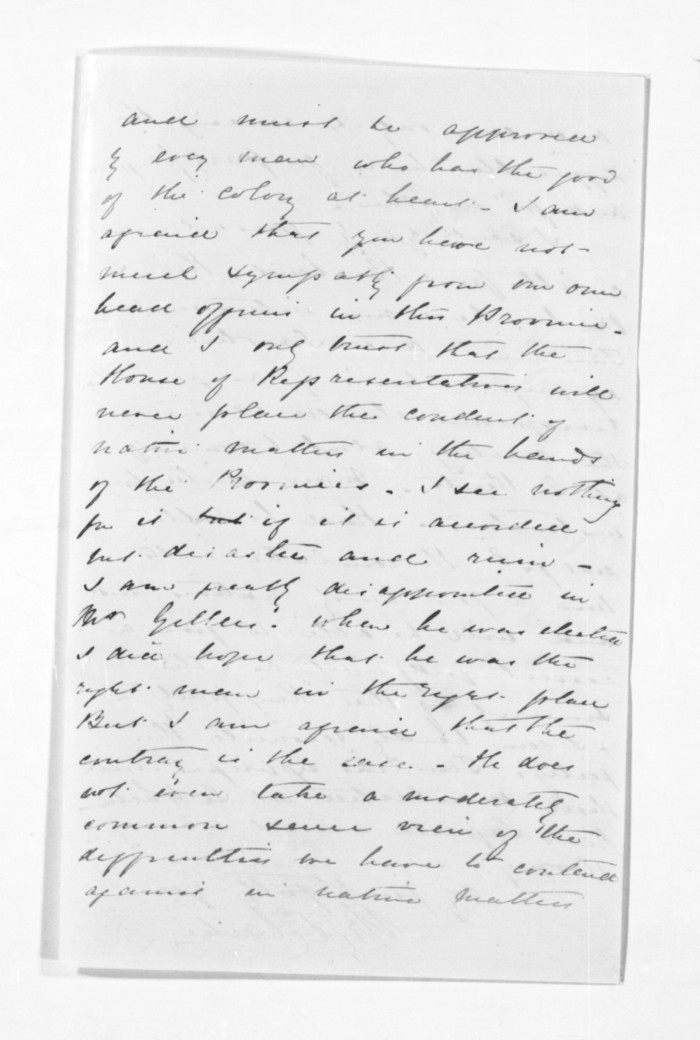 and must be approved
by every man who has the good
of the colony at heart - I am
afraid that you have not -
much sympathy from our own
head officers in this Province -
and I only trust that the
House of Representatives will
never place the conduct of
native matters in the hands
of the Provinces - I see nothing
for it but if it is accorded
but disaster and ruin -
I am greatly disappointed in
Mr when he was elected
I did hope that he was the
right man in the right place
But I am afraid that the
contrary is the case - He does
not even take a moderately
common sense view of the
difficulties we have to contend
against in native matters